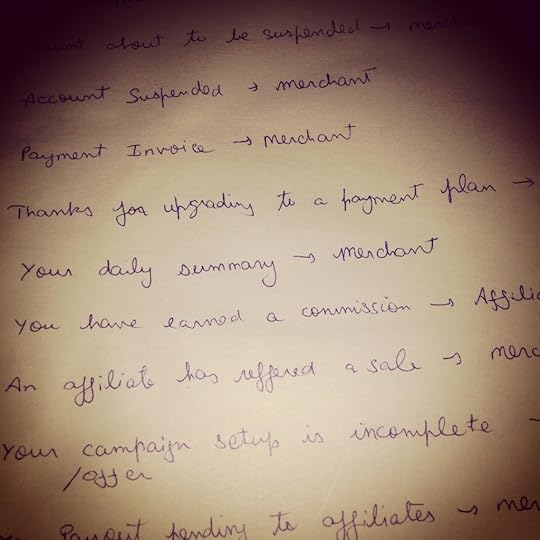 about to be suspended → merchant
Account Suspended → merchant
Payment Invoice → merchant
Thanks for upgrading to a payment plan →
Your daily summary → Merchant
You have earned a commission → Affilia
An affiliate has reffered a sale → merc
Your campaign setup is incomplete →
/offer
Payout pending to affiliates → mer